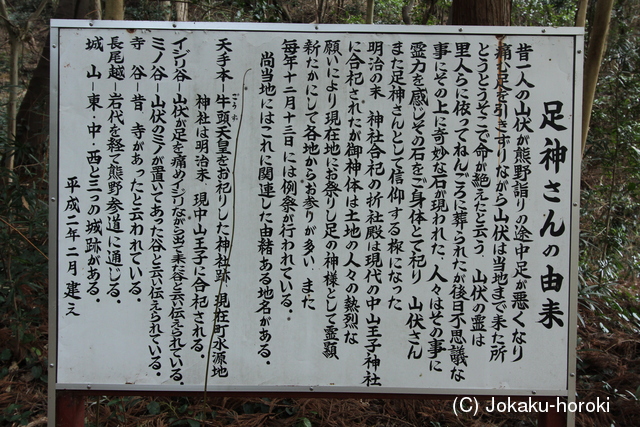 足神さんの由来
昔一人の山伏が熊野詣りの途中足が悪くなり
痛い足を引きずりながら山伏は当地まで来た所
とうとうそこで命が絶えたと云う 山伏の霊は
里人らに依ってねんごろに葬られたが後日不思議な
事にその上に奇妙な石が現われた、人々はその事に
霊力を感じその石をご身体とて祀り 山伏さん
また足神さんとして信仰する様になった
明治の末 神社合祀の折社殿は現代の中山王子神社
に合祀されたが御神体は土地の人々の熱烈な
願いにより現在地にお祭りし足の神様として霊顕
新たかにして各地からお参りが多い また
毎年十二月十三日には例祭が行われている。
尚当地にはこれに関連した由緒ある地名がある。
天手本―牛頭天皇をお祀りした神社跡 現在町水源地
ごうれ
神社は明治末、現中山王子に合祀される。
イジリ谷―山伏が足を痛めイジリながら出て来た谷と云い伝えられている。
ミノ谷―山伏のミノが置いてあった谷と云い伝えられている。
寺 谷―昔 寺があったと云われている。
長尾越―岩代を経て熊野参道に通じる。
城 山―東・中・西と三つの城跡がある。
平成二年二月 建え
(C) Jokaku-horoki